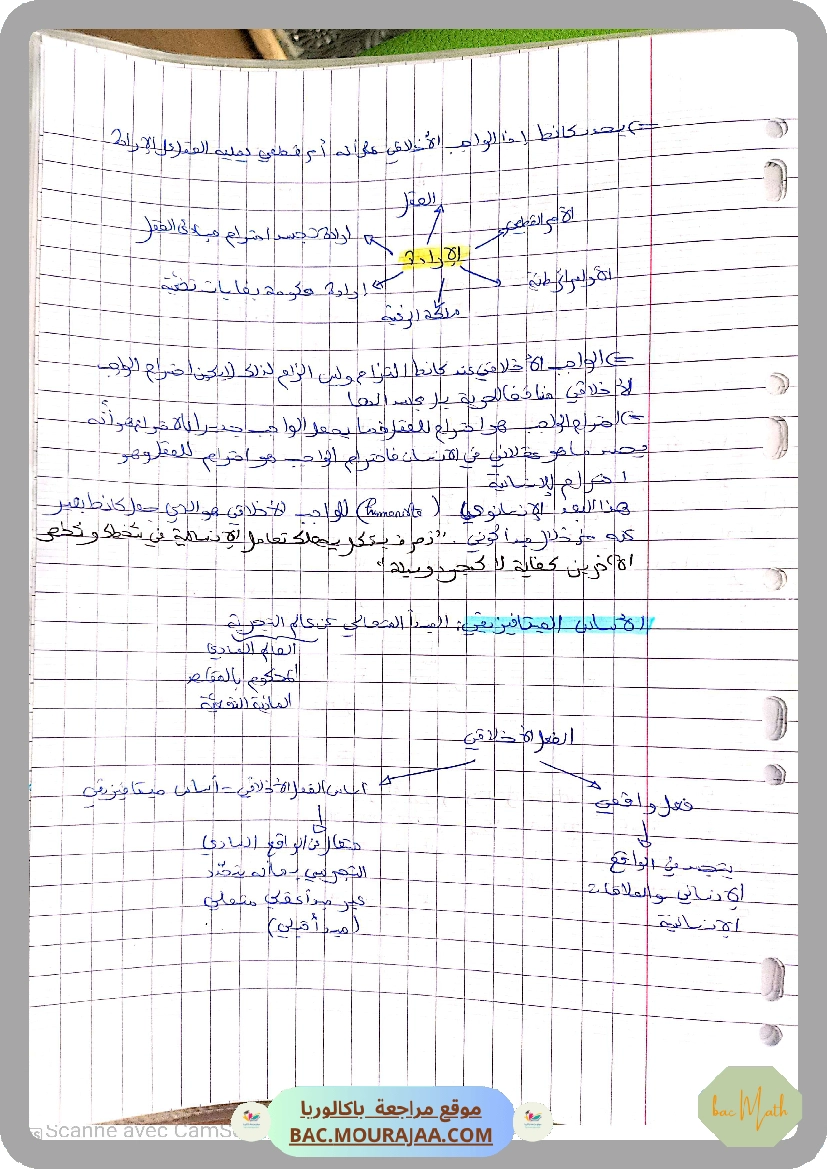 => يحدد كانط إذا الواجب الأخلاقي على أنه أمر قطعي يمليه العقل على الإرادة
العقل
الأمر القطعي
إرادة تجسد احترام مبادئ العقل
الإرادة
الأوامر الشرطية
إرادة محكومة بغايات نفعية
ملكة الرغبة
=> الواجب الأخلاقي عند كانط التزام وليس الزام لذلك لا يكون احترام الواجب
الأخلاقي مناقضا للحرية بل تجسيدا لها
=> احترام الواجب هو احترام للعقل فما يجعل الواجب جديرا بالاحترام هو أنه
يجسد ما هو عقلاني في الانسان فاحترام الواجب هو احترام للعقل وهو
احترام للإنسانية
هذا البعد الإنسانوي (humaniste) للواجب الأخلاقي هو الذي جعل كانط يعبر
عنه من خلال مبدأ كوني. "تصرف بشكل يجعلك تعامل الإنسانية في شخصك وشخص
الآخرين كغاية لا كمجرد وسيلة"
الأساس الميتافيزيقي: المبدأ المتعالي عن عالم التجربة
العالم المادي
المحكوم بالمقاصد
المادية النفعية
الفعل الأخلاقي
فعل واقعي
أساس الفعل الأخلاقي = أساس ميتافيزيقي
يتجسد في الواقع
الإنساني والعلاقات
الإنسانية
متعال عن الواقع المادي
التجريبي بما أنه يتحدد
عبر مبدأ عقلي متعالي
(مبدأ قبلي)
Scanné avec CamS
موقع مراجعة باكالوريا
BAC.MOURAJAA.COM
bac Math